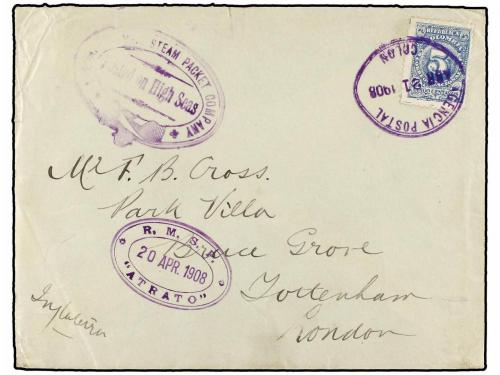 STEAM PACKET COMPANY
Posted on High Seas
REPUBLICA
COLOMBIA
5
AGENCIA POSTAL
ABR 21 1908
COLON
Mr F. B. Cross.
Park Villa
Bruce Grove
Tottenham
London
R. M. S. P.
20 APR. 1908
"ATRATO"
Inglaterra